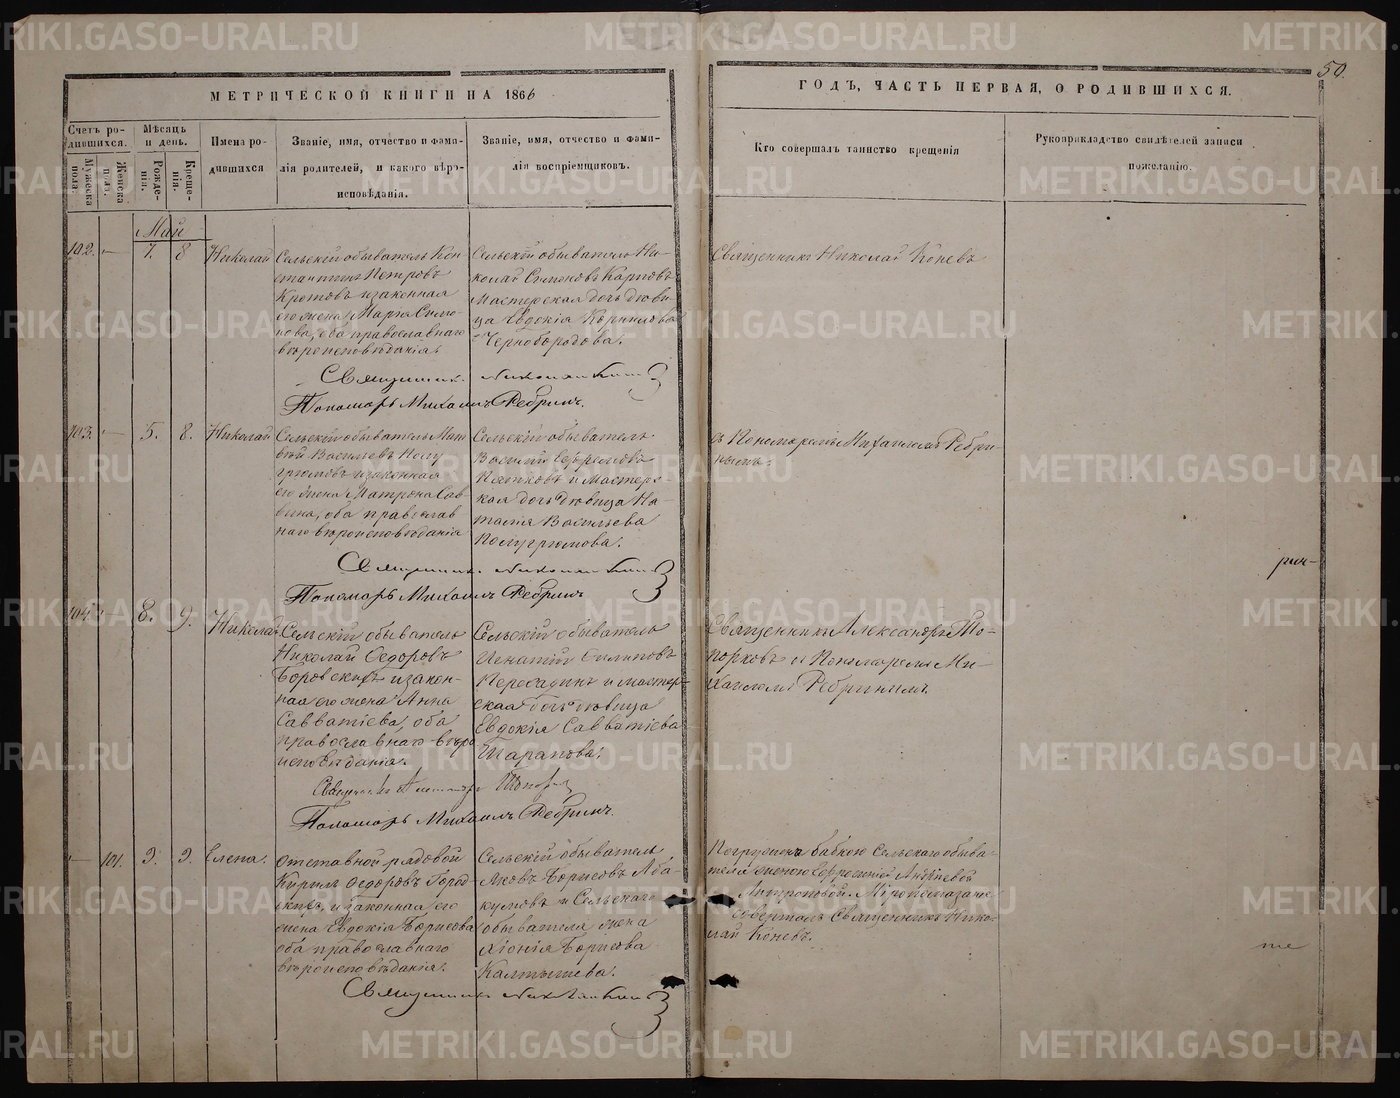 50.
МЕТРИЧЕСКОЙ КНИГИ НА 1866
ГОДЪ, ЧАСТЬ ПЕРВАЯ, О РОДИВШИХСЯ.
Счетъ родившихся.
Мужеска пола.
Женска пола.
Мѣсяцъ и день.
Рожденія.
Крещенія.
Имена родившихся
Званіе, имя, отчество и фамилія родителей, и какого вѣроисповѣданія.
Званіе, имя, отчество и фамилія воспріемщиковъ.
Кто совершалъ таинство крещенія
Рукоприкладство свидѣтелей записи пожеланію.
Май
102. — 7. 8 Николай
Сельскій обыватель Кон
стантинъ Петровъ
Кротовъ изаконная
его жена Марѳа Симо-
нова, оба православнаго
вѣроисповѣданія.
Сельскій обыватель Ни-
колай Симоновъ Карповъ
Мастерская дочь дѣви-
ца Евдокія Корнилова
Чернобородова.
Священникъ Николай Коневъ
Священникъ Николай Коневъ
Пономарь Михаилъ Ребринъ.
103. — 5. 8. Николай
Сельскій обыватель Мат
вѣй Васильевъ Полу
грюмовъ изаконная
его жена Матрона Сав
вина, оба православ
наго вѣроисповѣданія
Сельскій обыватель
Василій
Пятковъ и мастерс-
кая дочь дѣвица На-
талія Васильева
Полугрюмова.
съ Пономаремъ Михаиломъ Ребри
нымъ.
Священникъ Николай Коневъ
Пономарь Михаилъ Ребринъ
104. 8. 9. Николай
Сельскій обыватель
Николай Ѳедоровъ
Боровскихъ изакон-
ная его жена Анна
Савватіева, оба
православнаго вѣро
исповѣданія.
Сельскій обыватель
Игнатій Филиповъ
Пересадинъ и мастер-
ская дочь дѣвица
Евдокія Савватіева
Шарапова.
Священникъ Александръ То-
порковъ и Пономаремъ Ми-
хаиломъ Ребринымъ
Священникъ Александръ Топорковъ
Пономарь Михаилъ Ребринъ.
— 101. 9. 9. Елена.
Отставной рядовой
Кирилъ Ѳедоровъ Город-
скихъ, изаконная его
жена Евдокія Борисова
оба православнаго
вѣроисповѣданія.
Сельскій обыватель
Яковъ Борисовъ Аба-
кумовъ и Сельскаго
обывателя жена
Хіонія Борисова
Калтышева.
Погружена бабкою Сельскаго обыва-
теля женою
Антроповой. Міропомазаніе
совершалъ Священникъ Нико-
лай Коневъ.
Священникъ Николай Коневъ
METRIKI.GASO-URAL.RU